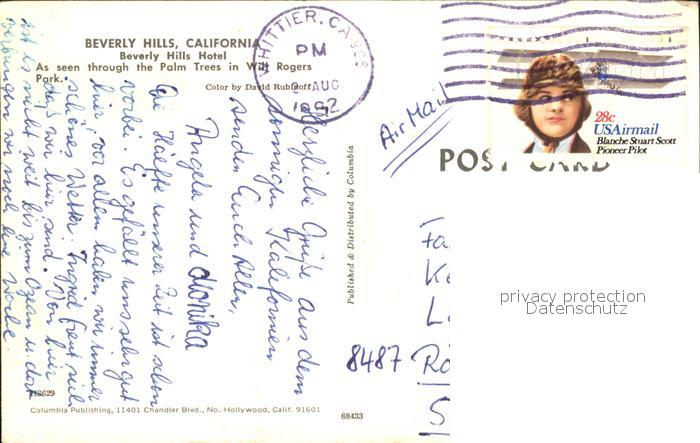 BEVERLY HILLS, CALIFORNIA
Beverly Hills Hotel
As seen through the Palm Trees in Will Rogers
Park.
Color by David Rubinoff
WHITTIER, CA 906
PM
AUG
1982
Air Mail
28c
USAirmail
Blanche Stuart Scott
Pioneer Pilot
POST CARD
Herzliche Grüße aus dem
sonnigen Kalifornien
senden Euch Allen,
Angela und Monika
Die Hälfte unserer Zeit ist schon
vorbei. Es gefällt uns sehr gut
hier, vor allem haben wir immer
schönes Wetter. Ingrid freut sich
daß wir hier sind. Von hier
ist es nicht weit bis zum Ozean u. dort
verbringen wir noch eine Woche.
Published & Distributed by Columbia
Fa
K
L
8487 Ro
S
privacy protection
Datenschutz
Columbia Publishing, 11401 Chandler Blvd., No. Hollywood, Calif. 91601
88433